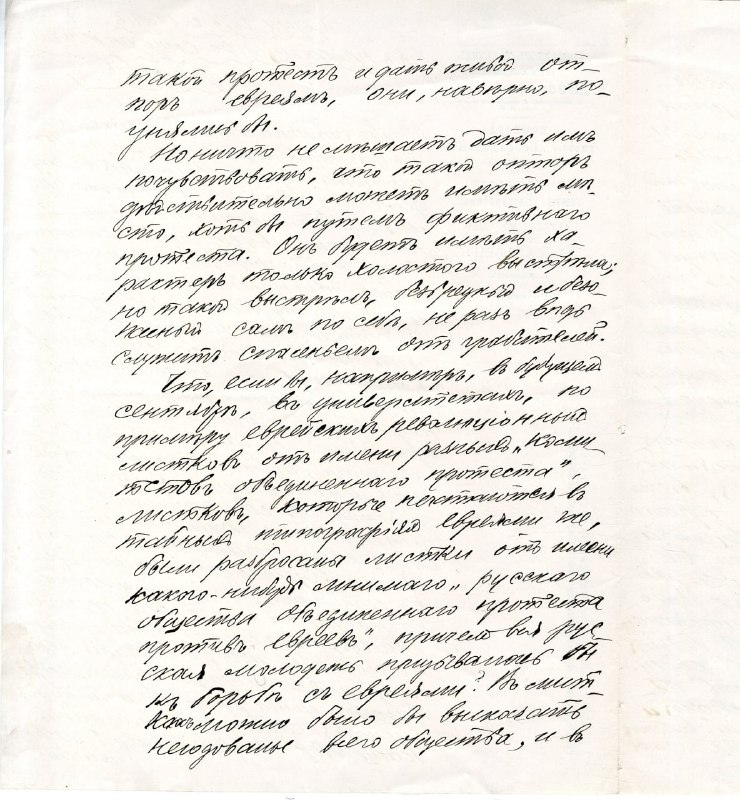 такой протестъ и дать живой от-
поръ евреямъ, они, навѣрно, по-
унялись бы.
Но ничто не мѣшаетъ дать имъ
почувствовать, что такой отпоръ
дѣйствительно можетъ имѣть мѣ-
сто, хотя бы путемъ фиктивнаго
протеста. Онъ будетъ имѣть ха-
рактеръ только холостого выстрѣла;
но такой выстрѣлъ, безвредный и безо-
пасный самъ по себѣ, не разъ вѣдь
служитъ спасеньемъ отъ грабителей.
Что, если бы, напримѣръ, въ будущемъ
сентябрѣ, въ университетахъ, по
примѣру еврейскихъ революціонныхъ
листковъ отъ имени разныхъ „Коми-
тетовъ объединеннаго протеста",
листковъ, которые печатаются въ
тайныхъ типографіяхъ евреями же,
были разбросаны листки отъ имени
какого-нибудь мнимаго „русскаго
общества объединеннаго протеста
противъ евреевъ", причемъ вся рус-
ская молодежь призывалась бы
къ борьбѣ съ евреями? Въ лист-
кахъ можно было бы высказать
негодованье всего общества, и въ